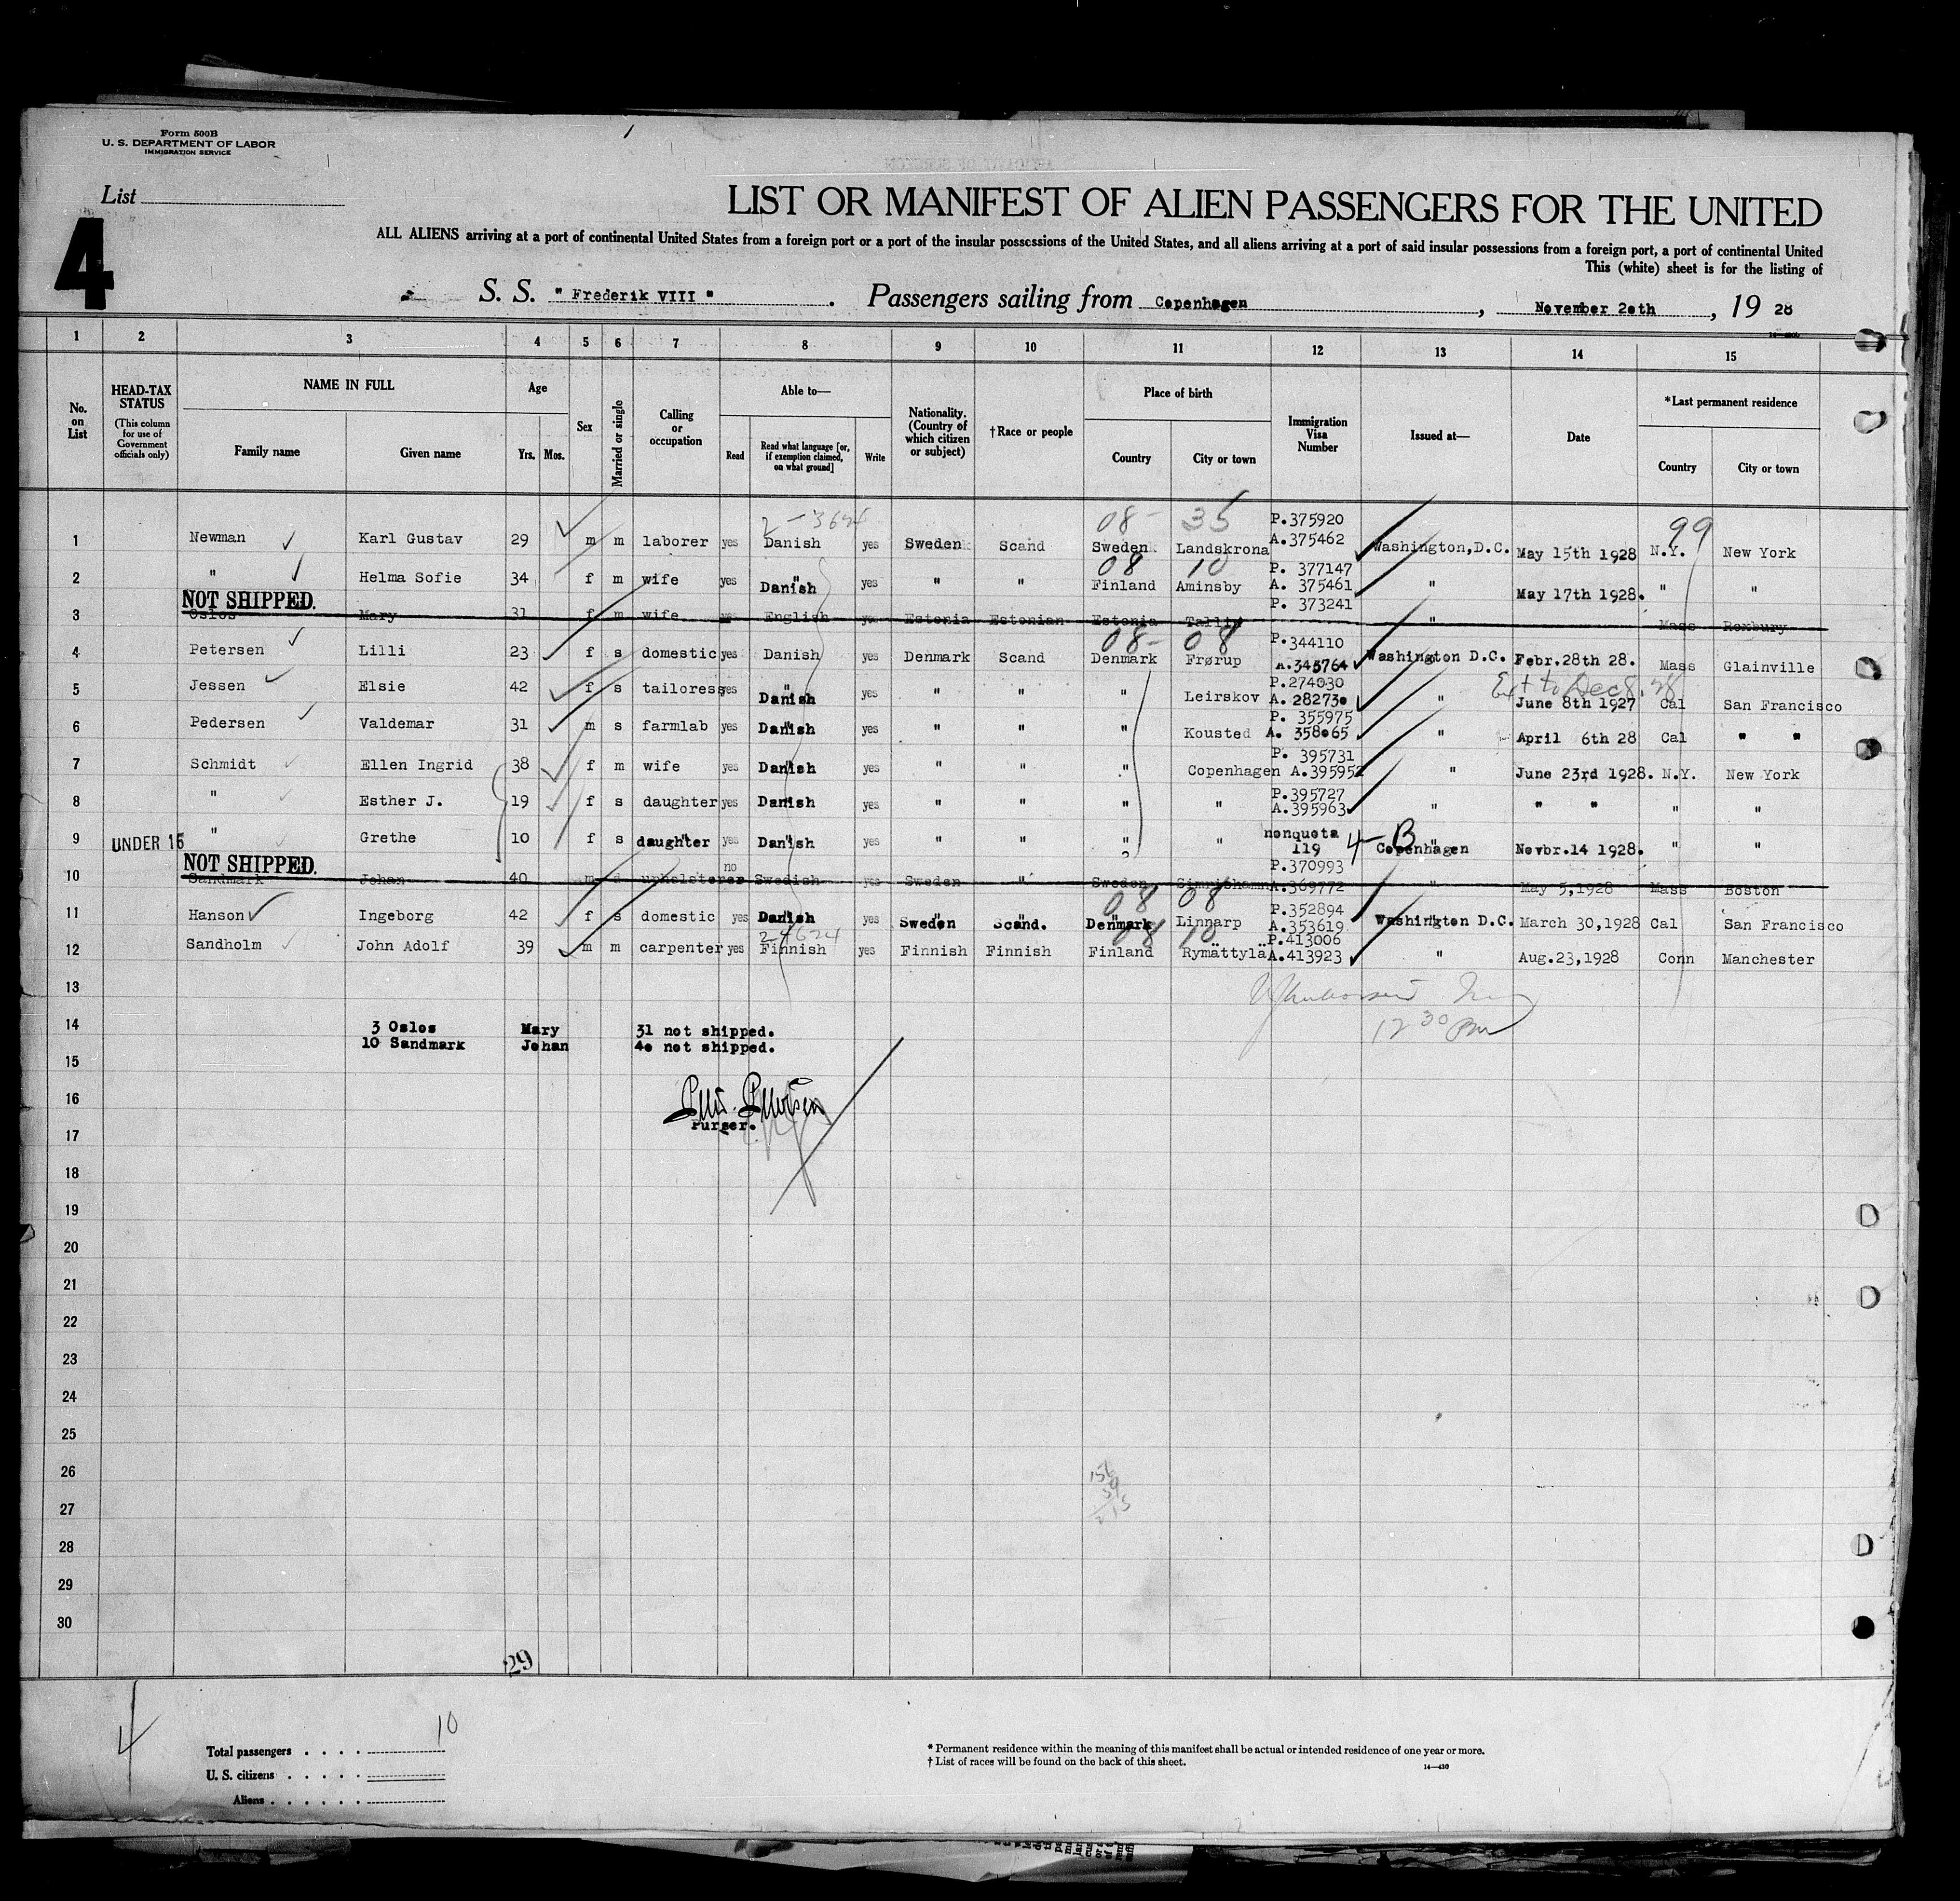 Form 500B
U. S. DEPARTMENT OF LABOR
IMMIGRATION SERVICE
List
4
LIST OR MANIFEST OF ALIEN PASSENGERS FOR THE UNITED
ALL ALIENS arriving at a port of continental United States from a foreign port or a port of the insular possessions of the United States, and all aliens arriving at a port of said insular possessions from a foreign port, a port of continental United
This (white) sheet is for the listing of
S. S. " Frederik VIII " . Passengers sailing from Copenhagen , November 20th , 19 28
1 2 3 4 5 6 7 8 9 10 11 12 13 14 15
No. on List
HEAD-TAX STATUS
(This column for use of Government officials only)
NAME IN FULL
Family name Given name
Age
Yrs. Mos.
Sex
Married or single
Calling or occupation
Able to—
Read Read what language [or, if exemption claimed, on what ground] Write
Nationality. (Country of which citizen or subject)
†Race or people
Place of birth
Country City or town
Immigration Visa Number
Issued at—
Date
*Last permanent residence
Country City or town
2 - 3624 08- 35 P.375920 99
1 Newman Karl Gustav 29 m m laborer yes Danish yes Sweden Scand Sweden Landskrona A.375462 Washington,D.C. May 15th 1928 N.Y. New York
08 10 P. 377147
2 " Helma Sofie 34 f m wife yes Danish yes " " Finland Aminsby A. 375461 " May 17th 1928. " "
NOT SHIPPED. P. 373241
3 Oslos Mary 31 f m wife yes English yes Estonia Estonian Estonia Tallin " Mass Roxbury
08- 08 P.344110
4 Petersen Lilli 23 f s domestic yes Danish yes Denmark Scand Denmark Frørup A.345764 Washington D.C. Febr.28th 28. Mass Glainville
P.274030 Ext to Dec 8. 28
5 Jessen Elsie 42 f s tailoress yes Danish yes " " " Leirskov A. 282730 " June 8th 1927 Cal San Francisco
P. 355975
6 Pedersen Valdemar 31 m s farmlab yes Danish yes " " " Kousted A. 358065 " April 6th 28 Cal " "
P. 395731
7 Schmidt Ellen Ingrid 38 f m wife yes Danish yes " " " Copenhagen A.395952 " June 23rd 1928. N.Y. New York
P.395727
8 " Esther J. 19 f s daughter yes Danish yes " " " " A.395963 " " " " "
nonquota
9 UNDER 16 " Grethe 10 f s daughter yes Danish yes " " " " 119 4-B Copenhagen Novbr.14 1928. " "
NOT SHIPPED. no P.370993
10 Sandmark Johan 40 m upholsterer Swedish yes Sweden " Sweden Simrishamn A.369772 " May 5,1928 Mass Boston
08 08 P.352894
11 Hanson Ingeborg 42 f s domestic yes Danish yes Sweden Scand. Denmark Linnarp A.353619 Washington D.C. March 30,1928 Cal San Francisco
24624 08 10 P.413006
12 Sandholm John Adolf 39 m m carpenter yes Finnish yes Finnish Finnish Finland Rymättylä A.413923 " Aug.23,1928 Conn Manchester
13
12 30 Pm
14 3 Oslos Mary 31 not shipped.
10 Sandmark Johan 40 not shipped.
15
16
Purser.
17
18
19
20
21
22
23
24
25
26
156
59
215
27
28
29
30
29
4
10
Total passengers
U. S. citizens
Aliens
* Permanent residence within the meaning of this manifest shall be actual or intended residence of one year or more.
† List of races will be found on the back of this sheet.
14—430